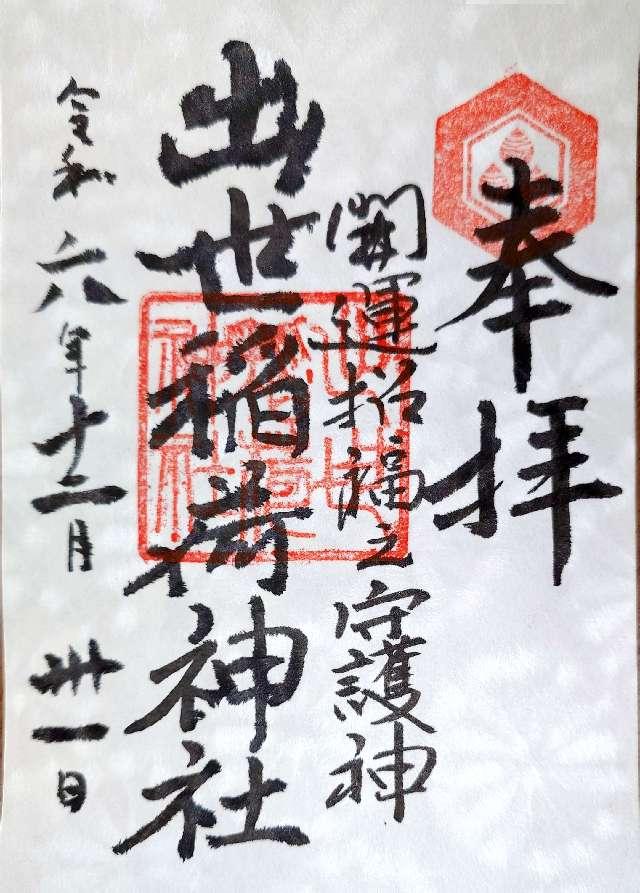 奉拝
開運招福之守護神
出世稲荷神社
令和六年十二月 卅一日